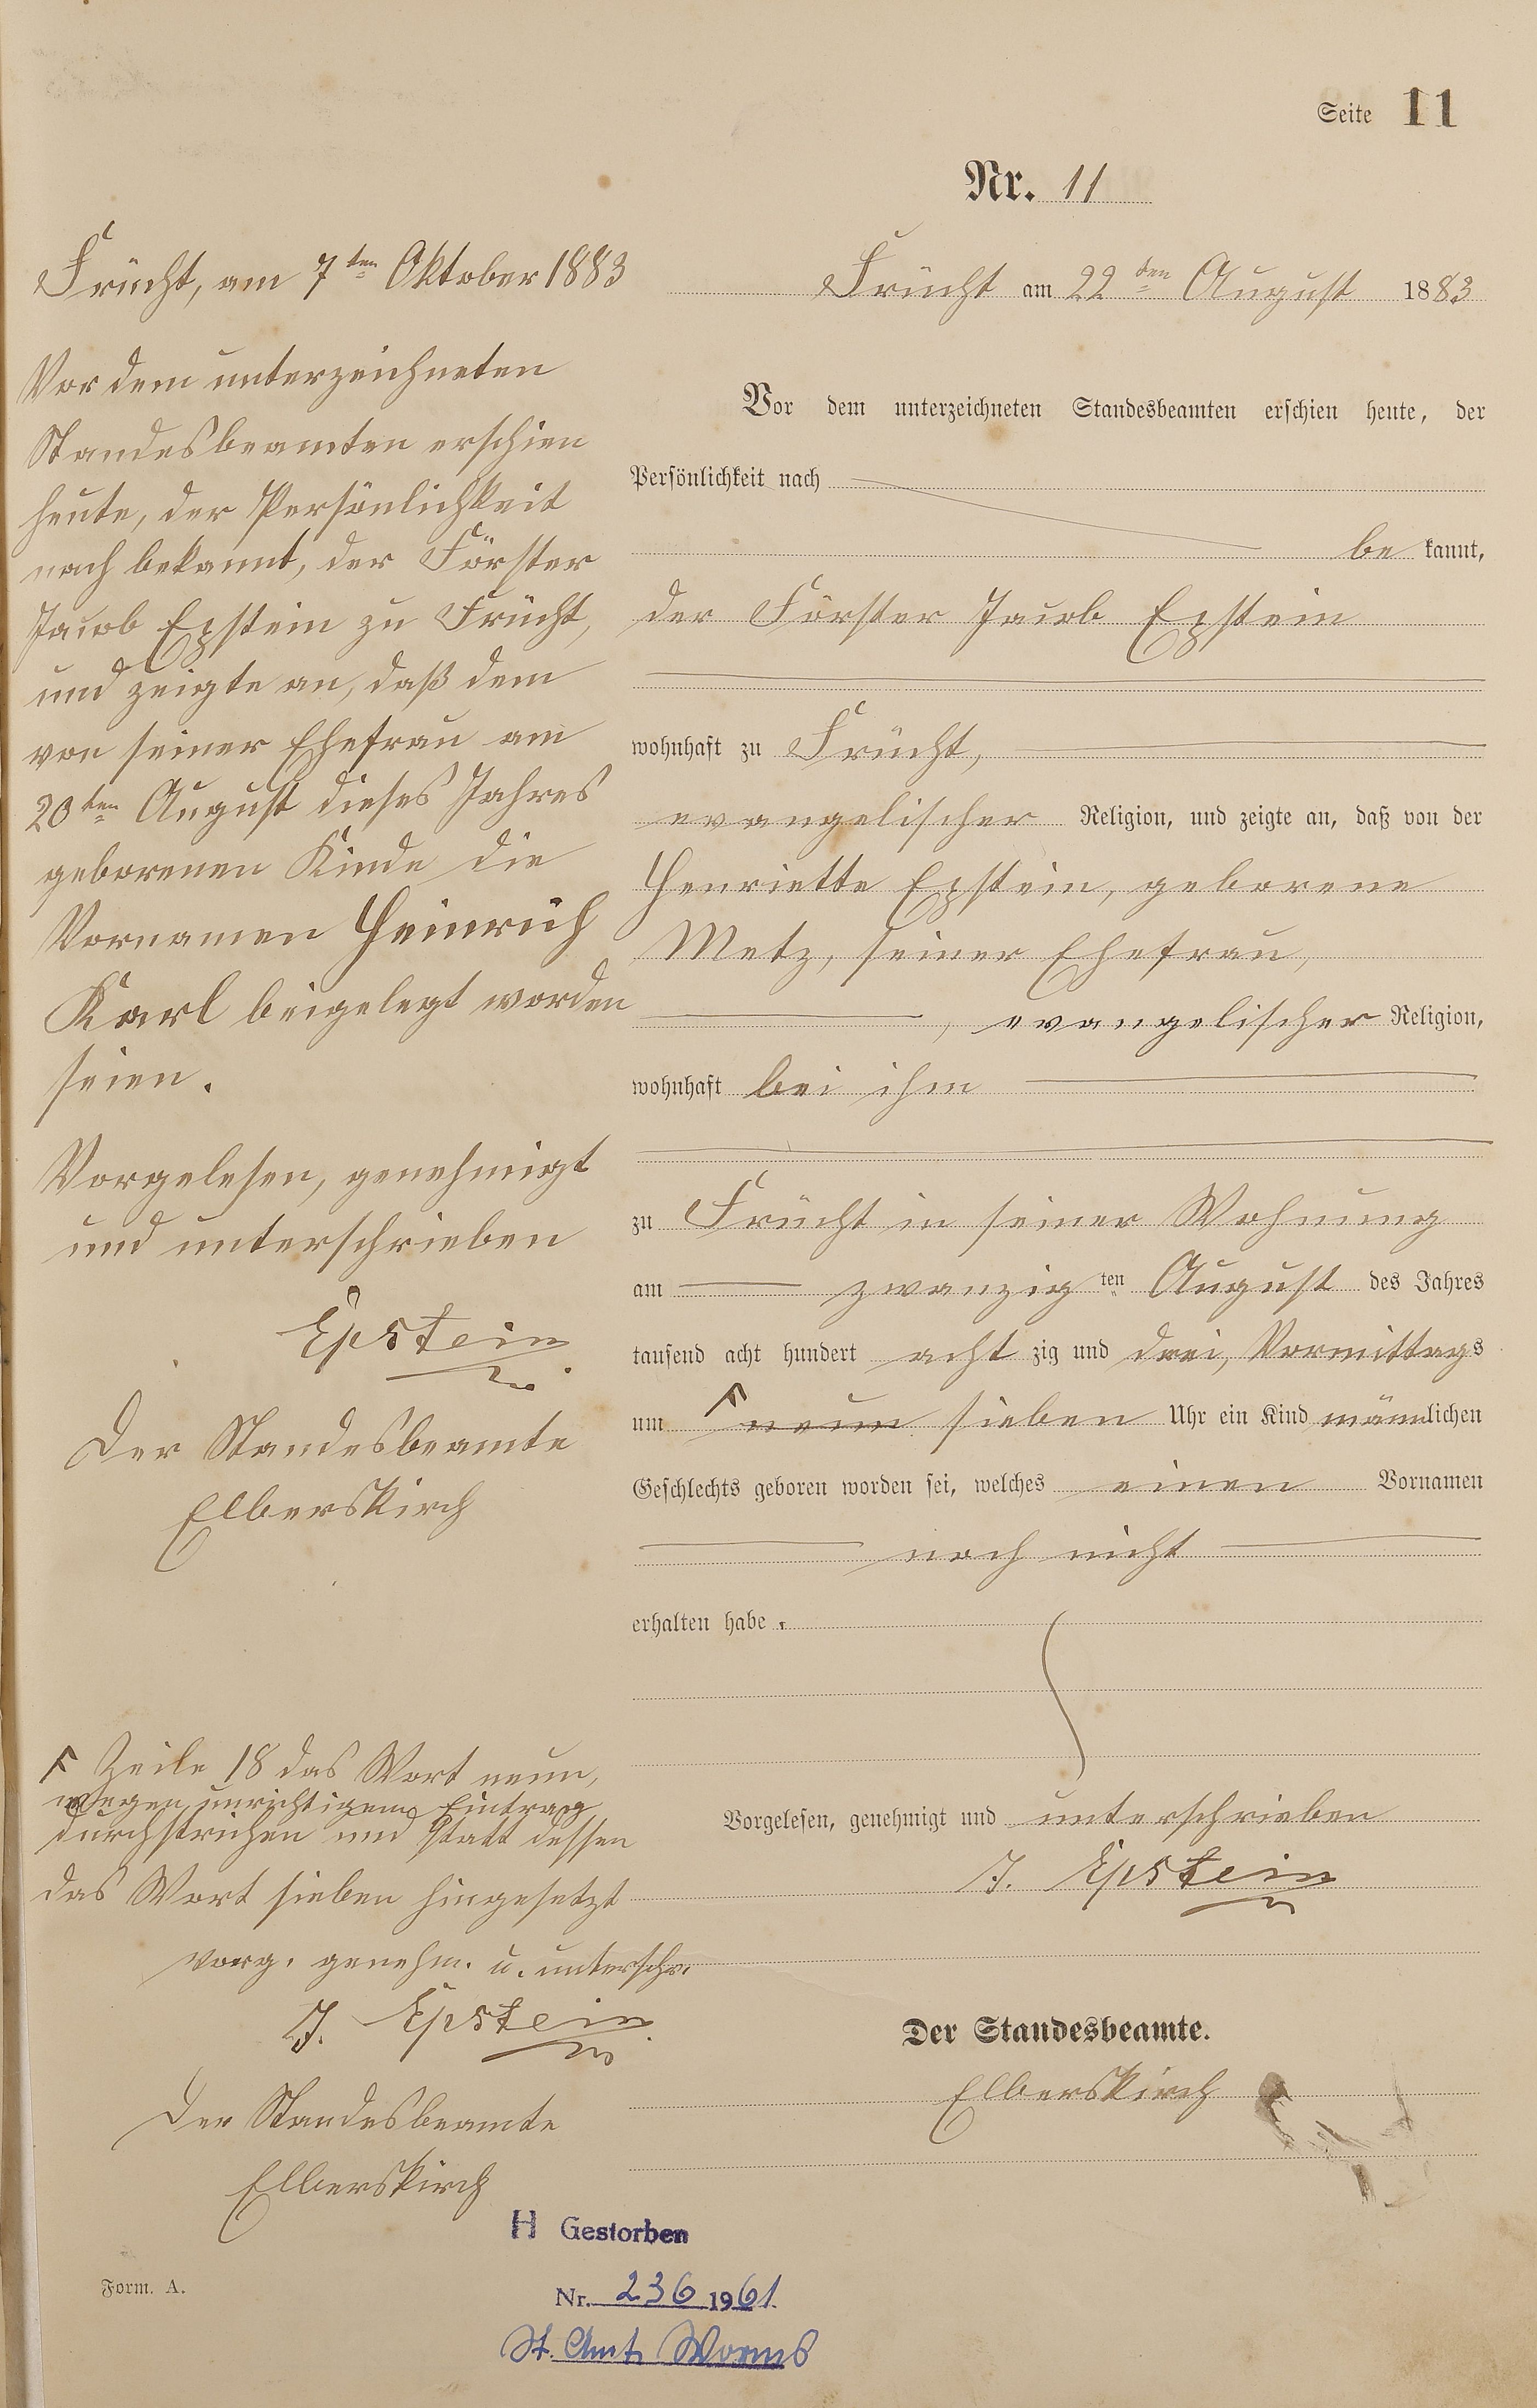 Seite 11
Nr. 11
Frücht, am 7ten Oktober 1883
Vor dem unterzeichneten
Standesbeamten erschien
heute, der Persönlichkeit
nach bekannt, der Förster
Jacob Epstein zu Frücht,
und zeigte an, daß dem
von seiner Ehefrau am
20ten August dieses Jahres
geborenen Kinde die
Vornamen Heinrich
Karl beigelegt worden
seien.
Vorgelesen, genehmigt
und unterschrieben
Epstein
Der Standesbeamte
Elberskirch
F Zeile 18 das Wort neun,
wegen unrichtigem Eintrag
durchstrichen und statt dessen
das Wort sieben hingesetzt
vorg. genehm. u. unterschr.
J. Epstein
Der Standesbeamte
Elberskirch
Frücht am 22ten August 1883
Vor dem unterzeichneten Standesbeamten erschien heute, der
Persönlichkeit nach
be kannt,
der Förster Jacob Epstein
wohnhaft zu Frücht,
evangelischer Religion, und zeigte an, daß von der
Henriette Epstein, geborene
Metz, seiner Ehefrau,
, evangelischer Religion,
wohnhaft bei ihm
zu Frücht in seiner Wohnung
am zwanzigten August des Jahres
tausend acht hundert acht zig und drei, Vormittags
um F neun sieben Uhr ein Kind männlichen
Geschlechts geboren worden sei, welches einen Vornamen
noch nicht
erhalten habe.
Vorgelesen, genehmigt und unterschrieben
J. Epstein
Der Standesbeamte.
Elberskirch
H Gestorben
Nr. 236 1961
St. Amt Worms
Form. A.